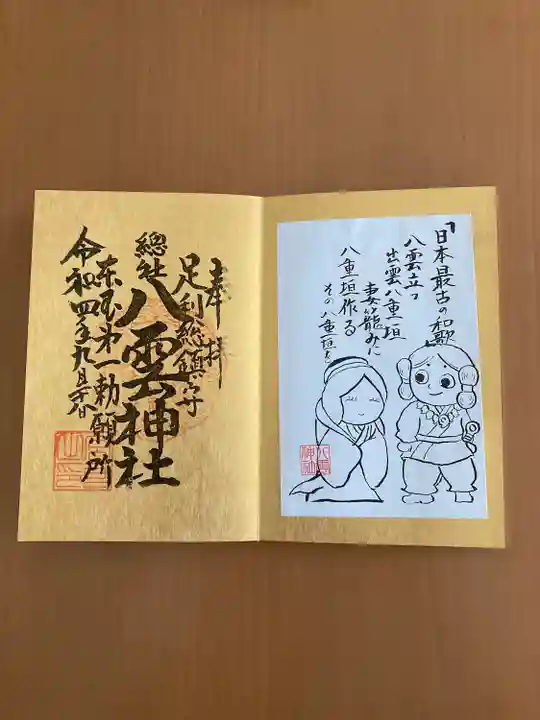 奉拝
足利総鎮守
總社
八雲神社
東国第一勅願所
令和四年九月
「日本最古の和歌」
八雲立つ
出雲八重垣
妻籠みに
八重垣作る
その八重垣を
八雲
神社